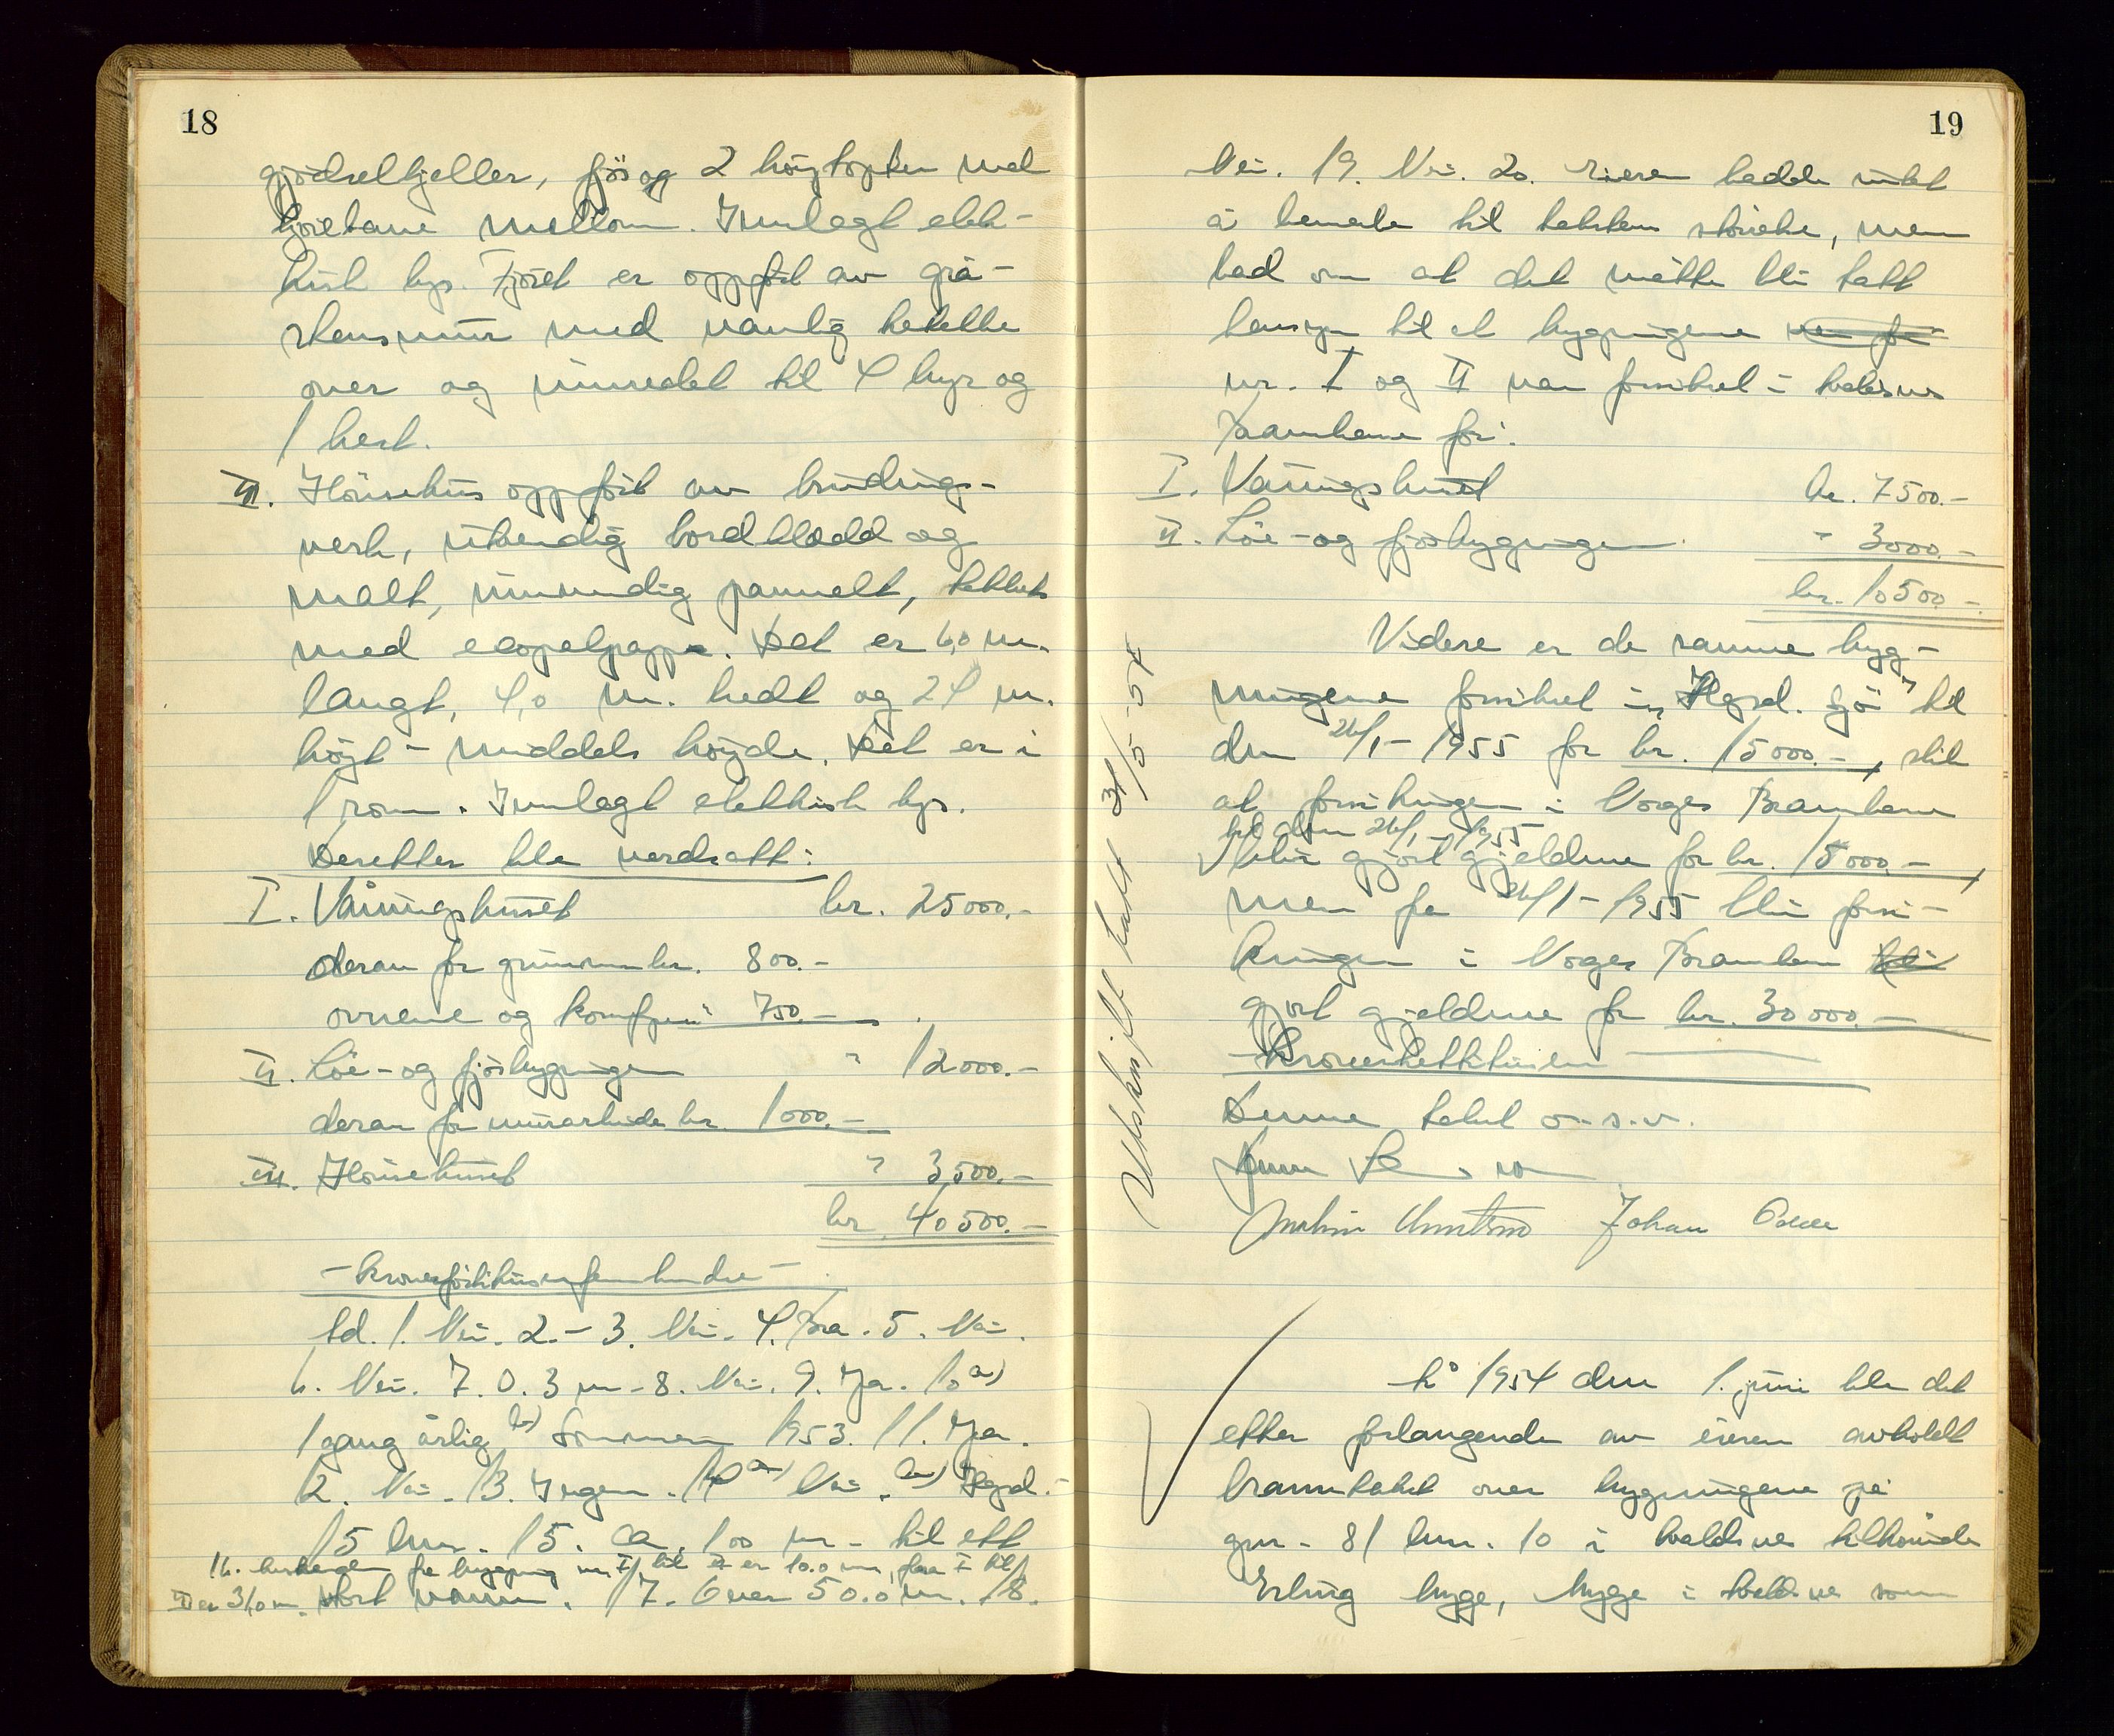 18
gjødselkjeller, fjøs og 2 høystopker med
kjørebane mellom. Innlagt elek-
trisk lys. Fjøset er oppført av grå-
stensmur med vanlig
over og innredet til 4 kyr og
1 hest.
III. Hønsehus oppført av bindings-
verk, utvendig bordkledd og
malt, innvendig pannelt, tekket
med eaopalpapp. Det er 6,0 m.
langt, 4,0 m. bredt og 2,4 m.
høyt - middels høyde. Det er i
1 rom. Innlagt elektrisk lys.
Deretter ble verdsatt:
I. Våningshuset kr. 25000.-
derav for grunnmur kr. 800.-
ovnene og komfyren " 750.-
II. Løe- og fjøsbygningen " 12000.-
derav for murarbeide kr. 1000.-
III. Hønsehuset " 3,500.-
kr. 40500.-
- Kronerførtitusenfemhundre -
td. 1. Nei. 2. - 3. Nei. 4. Bra. 5. Nei.
6. Nei. 7. 0.3 m. 8. Nei. 9. Ja. 10 a)
1 gang årlig b) Sommeren 1953. 11. Ja.
12. Nei. 13. Ingen. 14 a) Nei. b) Hgsd.
15 km. 15. Ca. 100 m. til ett
16. Avstanden fra bygning nr. I til II er 10.0 m, fra I til
III er 31,0 m. stort vann. 17. Over 50.0 m. 18.
19
Nei. 19. Nei. 20. Eieren hadde intet
å bemerke til takstens størrelse, men
bad om at det måtte bli tatt
hensyn til at bygningene
nr. I og II var forsikret i
Brannkasse for:
I. Våningshuset kr. 7500.-
II. Løe- og fjøsbygningen " 3000.-
kr. 10500.-
Videre er de samme byg-
ningene forsikret i Hgsd. Sjø" til
den 26/1 - 1955 for kr. 15000.-, slik
at forsikringen i Norges Brannkasse
til den 26/1 - 1955
blir gjort gjeldene for kr. 15000.-,
men fra 26/1 - 1955 blir forsi-
kringen i Norges Brannkasse
gjort gjeldene for kr. 30000.-
- Kronertrettitusen
Denne takst o.s.v.
Johan
Utskrift tatt 31/5-54
År 1954 den 1. juni ble det
etter forlangende av eieren avholdt
branntakst over bygningene på
gnr. 81 bnr. 10 i tilhørende
Erling Bygge, Bygge i som